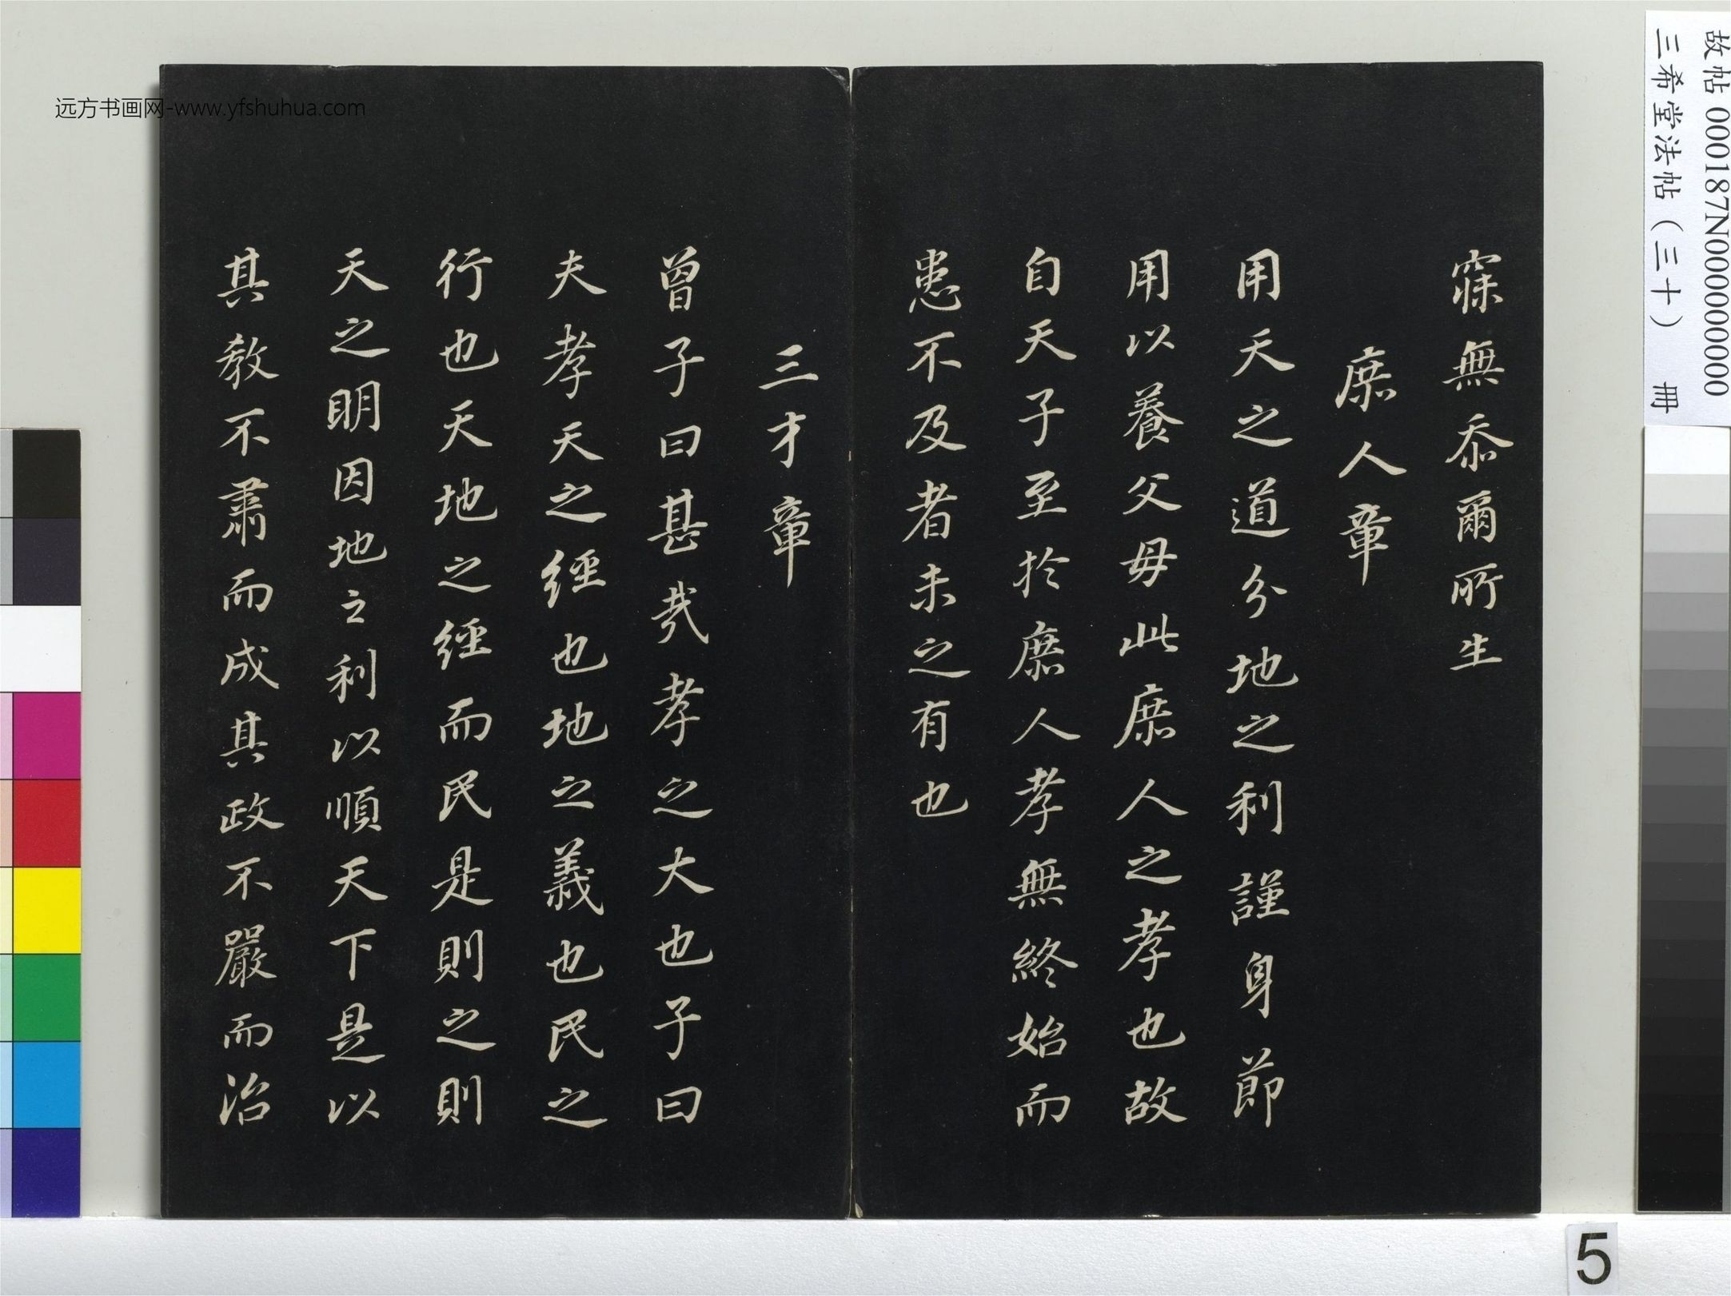 寐無忝爾所生
庶人章
用天之道分地之利謹身節
用以養父母此庶人之孝也故
自天子至於庶人孝無終始而
患不及者未之有也
三才章
曾子曰甚哉孝之大也子曰
夫孝天之經也地之義也民之
行也天地之經而民是則之則
天之明因地之利以順天下是以
其教不肅而成其政不嚴而治
故帖 000187N000000000
三希堂法帖（三十） 冊
远方书画网-www.yfshuhua.com
5